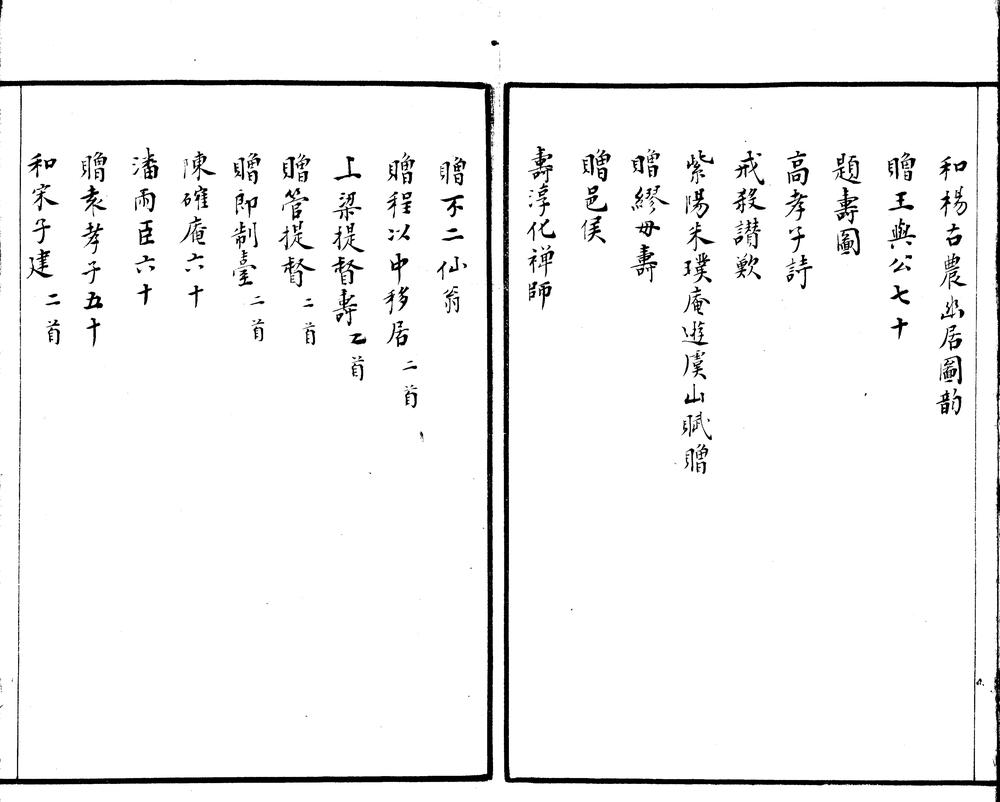 和楊古農幽居圖韵
贈王與公七十
題壽圖
高孝子詩
戒殺讃歎
紫陽朱璞庵遊虞山賦贈
贈繆母壽
贈邑侯
壽淳化禅師
贈不二仙翁
贈程以中移居 二首
上梁提督壽 二首
贈管提督 二首
贈郎制臺 二首
陳確庵六十
潘雨臣六十
贈袁孝子五十
和宋子建 二首